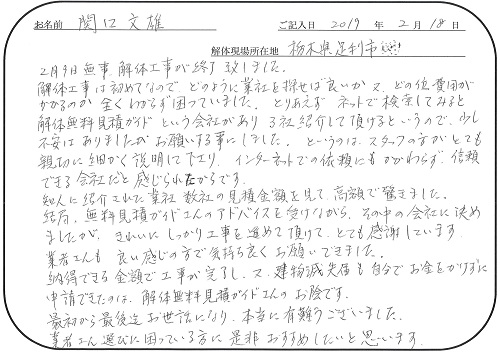 お名前 関口 文雄 ご記入日 2019 年 2 月 18 日
解体現場所在地 栃木県足利市
2月9日無事、解体工事が終了致しました。
解体工事は初めてなので、どのように業社を探せば良いか又、どの位費用が
かかるのか全くわからず困っていました。とりあえずネットで検索してみると
解体無料見積ガイドという会社があり3社紹介して頂けるというので、少し
不安はありましたがお願いする事にしました。というのは、スタッフの方がとても
親切に細かく説明して下さり、インターネットでの依頼にもかかわらず信頼
できる会社だと感じられたからです。
知人に紹介された業社数社の見積金額を見て、高額で驚きました。
結局、無料見積ガイドさんのアドバイスを受けながら、その中の会社に決め
ましたが、きれいにしっかり工事を進めて頂けて、とても感謝しています。
業者さんも良い感じの方で気持ち良くお願いできました。
納得できる金額で工事が完了し、又、建物滅失届も自分でお金をかけずに
申請できたのは、解体無料見積ガイドさんのお陰です。
最初から最後迄お世話になり、本当に有難うございました。
業者さん選びに困っている方に是非おすすめしたいと思います。